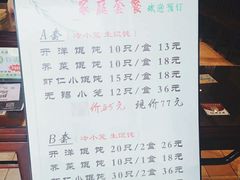 家庭套餐 欢迎预订
A套 冷小笼 生馄饨:
开洋馄饨 10只/盒 13元
荠菜馄饨 10只/盒 13元
虾仁小馄饨 15只/盒 18元
无锡小笼 12只/盒 36元
现价77元
B套 冷小笼 生馄饨:
开洋馄饨 20只/2盒 26元
荠菜馄饨 10只/1盒 18元
30只/2盒 36元